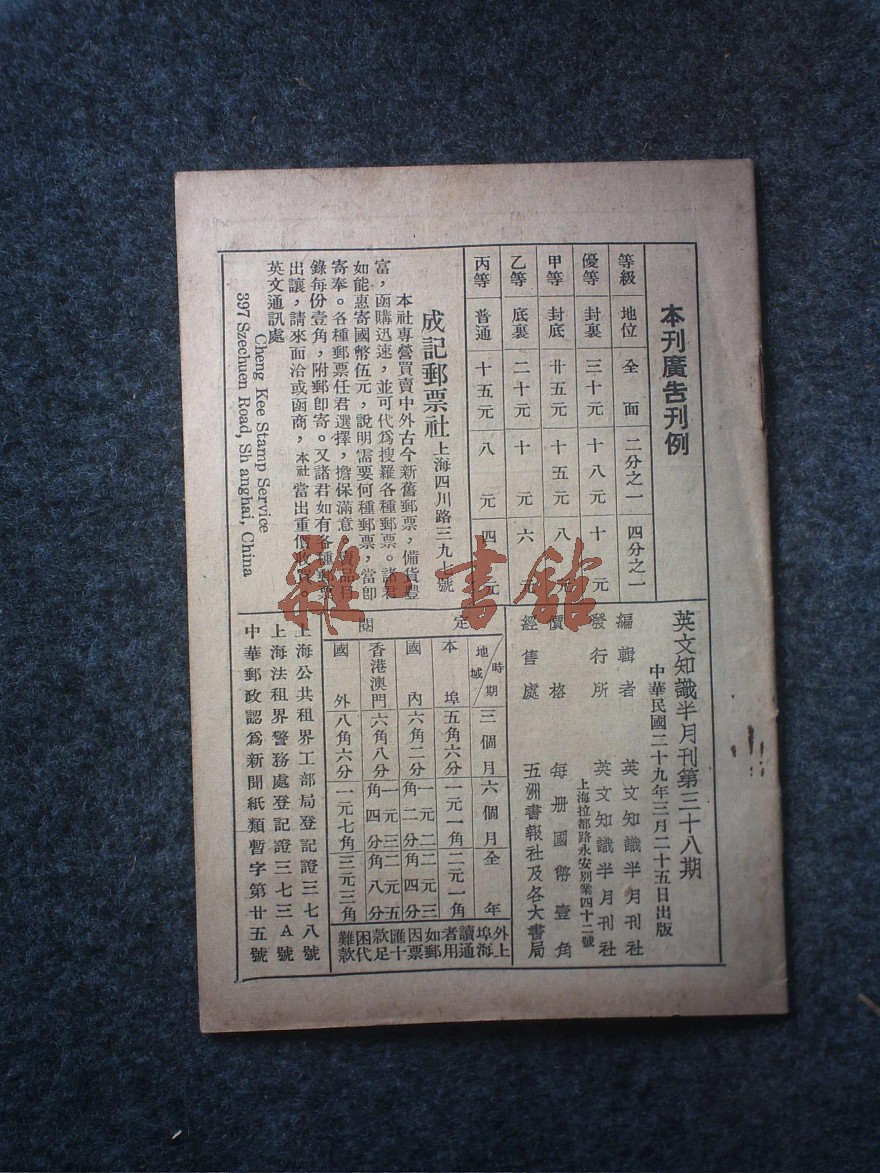 本刊廣告刊例
等級 地位 全面 二分之一 四分之一
優等 封裏 三十元 十八元 十元
甲等 封底 廿五元 十五元 八元
乙等 底裏 二十元 十元 六元
丙等 普通 十五元 八元 四元
成記郵票社 上海四川路三九七號
本社專營買賣中外古今新舊郵票，備貨豐
富，函購迅速，並可代爲搜羅各種郵票。諸君
如能惠寄國幣伍元，說明需要何種郵票，當卽
寄奉。各種郵票任君選擇，擔保滿意。賣品目
錄每份壹角，附郵卽寄。又諸君如有各種郵票
出讓，請來面洽或函商，本社當出重價收買。
英文通訊處
Cheng Kee Stamp Service
397 Szechuen Road, Sh anghai, China
英文知識半月刊第三十八期
中華民國二十九年三月二十五日出版
編輯者 英文知識半月刊社
發行所 英文知識半月刊社
上海拉都路永安別業四十二號
價格 每册國幣壹角
經售處 五洲書報社及各大書局
定閱
時期 地域 三個月 六個月 全年
本埠 五角六分 一元一角 二元一角
國內 六角二分 一元二角二分 二元三角四分
香港澳門 六角八分 一元三角四分 二元五角八分
國外 八角六分 一元七角 三元三角
外埠讀者如因匯款困難
上海通用郵票十足代款
上海公共租界工部局登記證三七八號
上海法租界警務處登記證三七三A號
中華郵政認爲新聞紙類暫字第廿五號
雜·書館